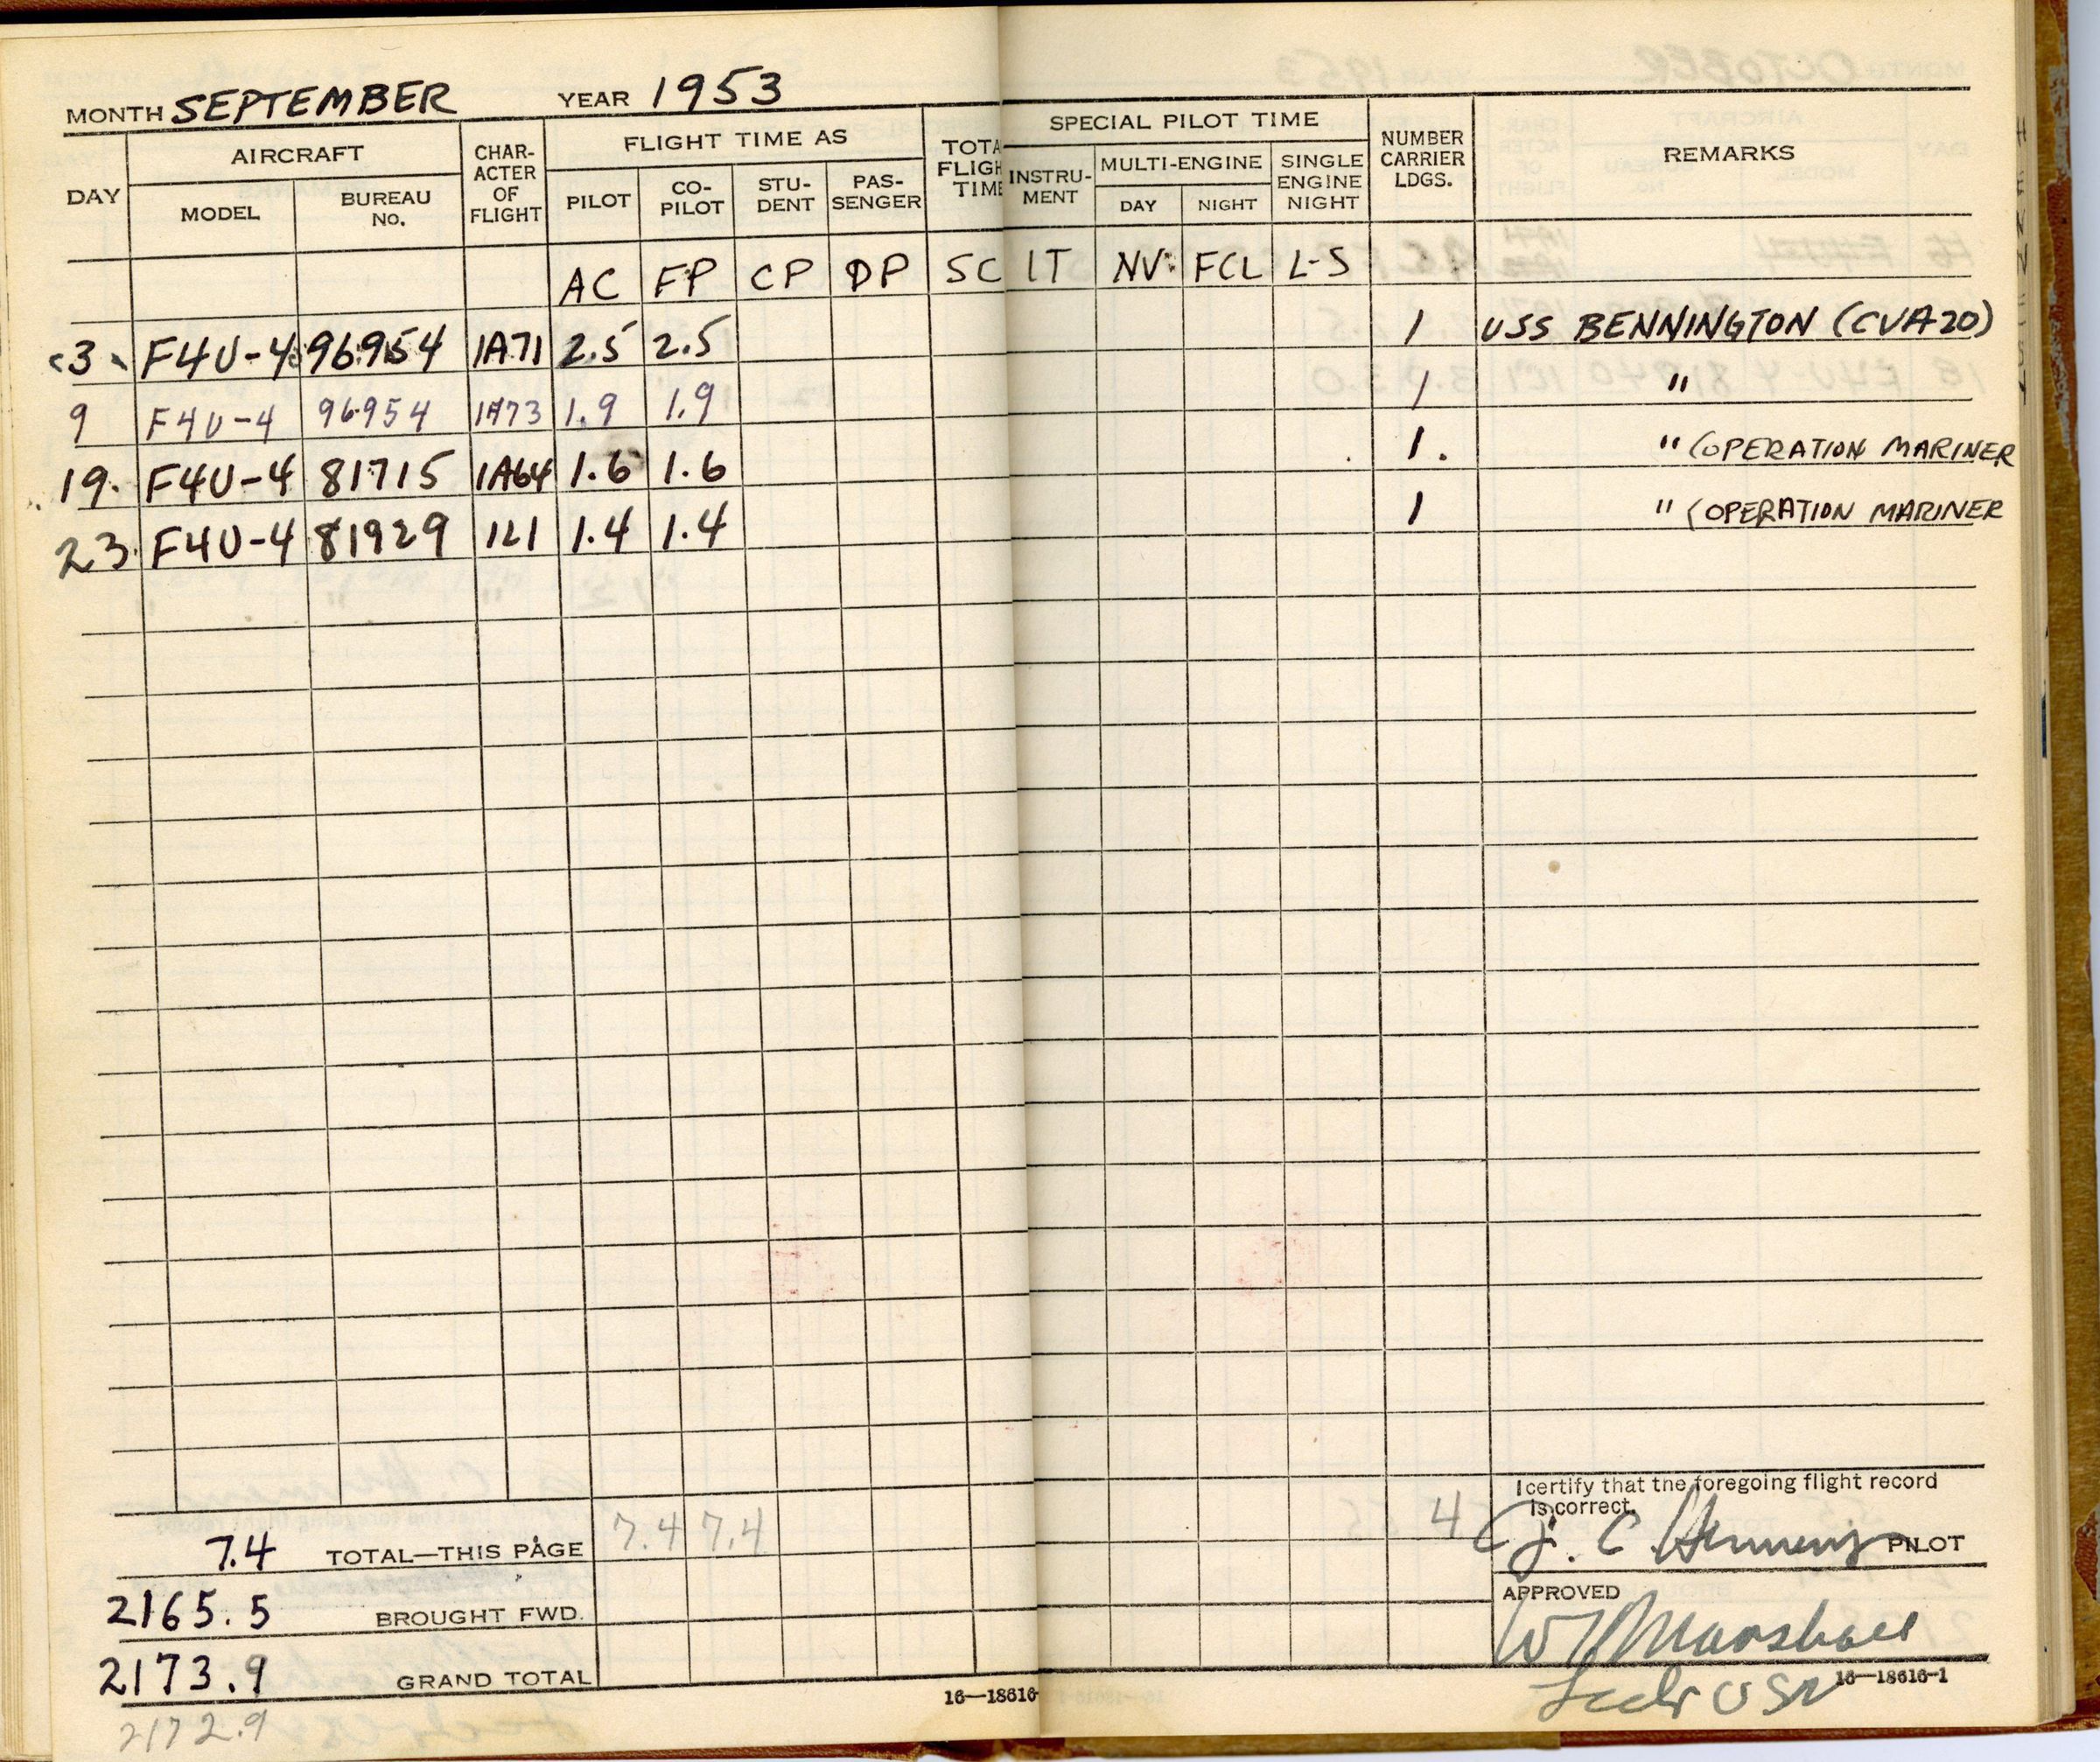 MONTH SEPTEMBER YEAR 1953
DAY AIRCRAFT CHAR-ACTER OF FLIGHT FLIGHT TIME AS TOTA FLIGH TIME SPECIAL PILOT TIME NUMBER CARRIER LDGS. REMARKS
MODEL BUREAU No. PILOT CO-PILOT STU-DENT PAS-SENGER INSTRU-MENT MULTI-ENGINE SINGLE ENGINE NIGHT
DAY NIGHT
AC FP CP DP SC IT NV FCL L-S
3 F4U-4 96954 1A71 2.5 2.5 1 USS BENNINGTON (CVA20)
9 F4U-4 96954 1A73 1.9 1.9 1 "
19. F4U-4 81715 1A64 1.6 1.6 1. " (OPERATION MARINER
23 F4U-4 81929 121 1.4 1.4 1 " (OPERATION MARINER
I certify that the foregoing flight record
is correct.
7.4 TOTAL—THIS PAGE 7.4 7.4 4 J. C. PILOT
2165.5 BROUGHT FWD. APPROVED
Marshall
2173.9 GRAND TOTAL 16—18616 USN 16—18616-1
2172.9